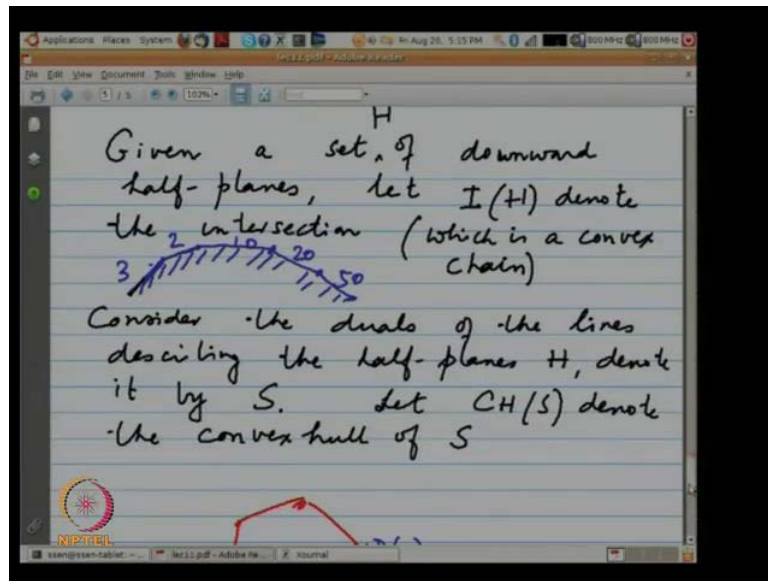 Applications Places System
Fri Aug 28, 5:15 PM
800 MHz
800 MHz
lec11.pdf - Adobe Reader
File Edit View Document Tools Window Help
5 / 5
102%
H
Given a set ‸ of downward
half-planes, let I(H) denote
the intersection (which is a convex
chain)
3 2 10 20 50
Consider the duals of the lines
describing the half-planes H, denote
it by S. Let CH(S) denote
the convex hull of S
NPTEL
ssen@ssen-tablet: ~
lec11.pdf - Adobe Re...
Xournal